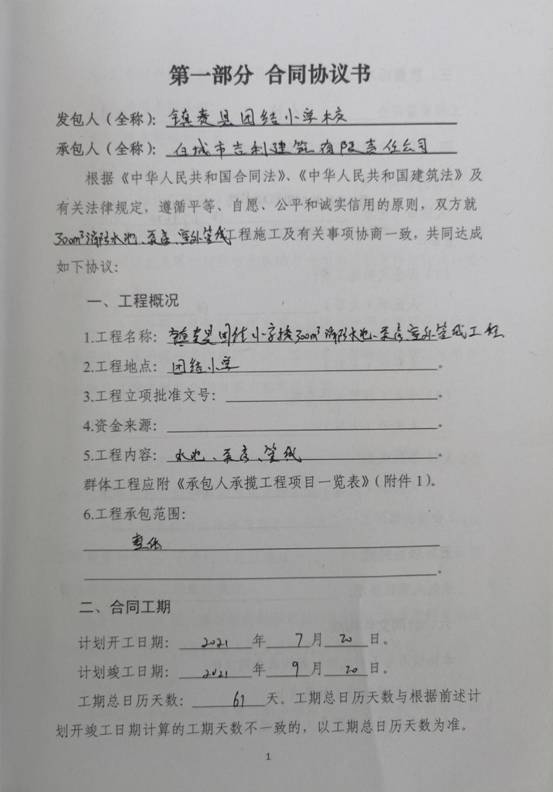 第一部分 合同协议书
发包人（全称）：镇赉县团结小学校
承包人（全称）：白城市吉利建筑有限责任公司
根据《中华人民共和国合同法》、《中华人民共和国建筑法》及
有关法律规定，遵循平等、自愿、公平和诚实信用的原则，双方就
300m³消防水池、泵房、室外管线工程施工及有关事项协商一致，共同达成
如下协议：
一、工程概况
1.工程名称：镇赉县团结小学校300m³消防水池、泵房室外管线工程
2.工程地点：团结小学。
3.工程立项批准文号：。
4.资金来源：。
5.工程内容：水池、泵房、管线。
群体工程应附《承包人承揽工程项目一览表》（附件1）。
6.工程承包范围：
二、合同工期
计划开工日期：2021年7月20日。
计划竣工日期：2021年9月20日。
工期总日历天数：61天。工期总日历天数与根据前述计
划开竣工日期计算的工期天数不一致的，以工期总日历天数为准。
1